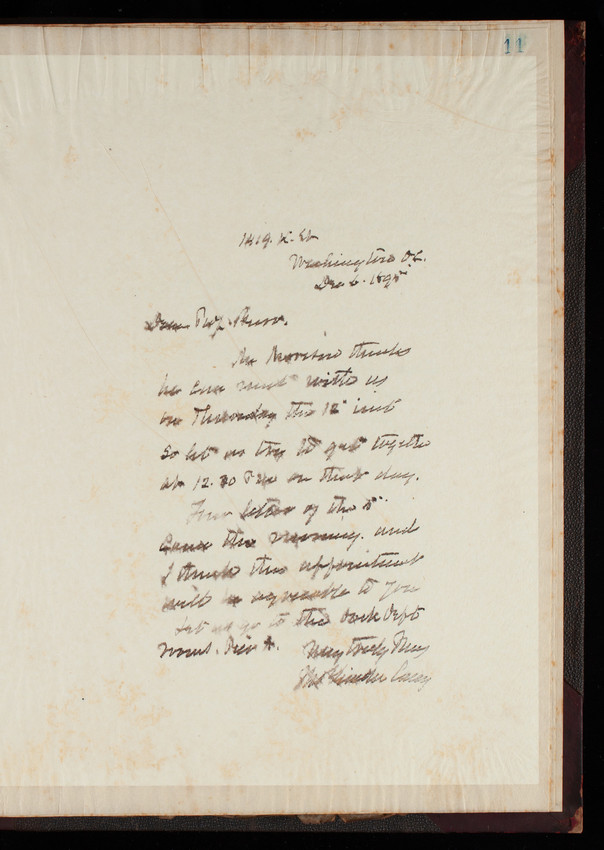 11
1419. K. St
Washington D.C.
Dec 6. 1895
Dear Prof.
Mr thinks
he can meet with us
on Thursday the 12" inst
So let us try to get together
at 12.30 P.M on that day.
Your letter of the 5"
came this morning. and
I think this appointment
will be agreeable to you
Let us go to the Dept
rooms. Very truly Yours
Thos Lincoln Casey